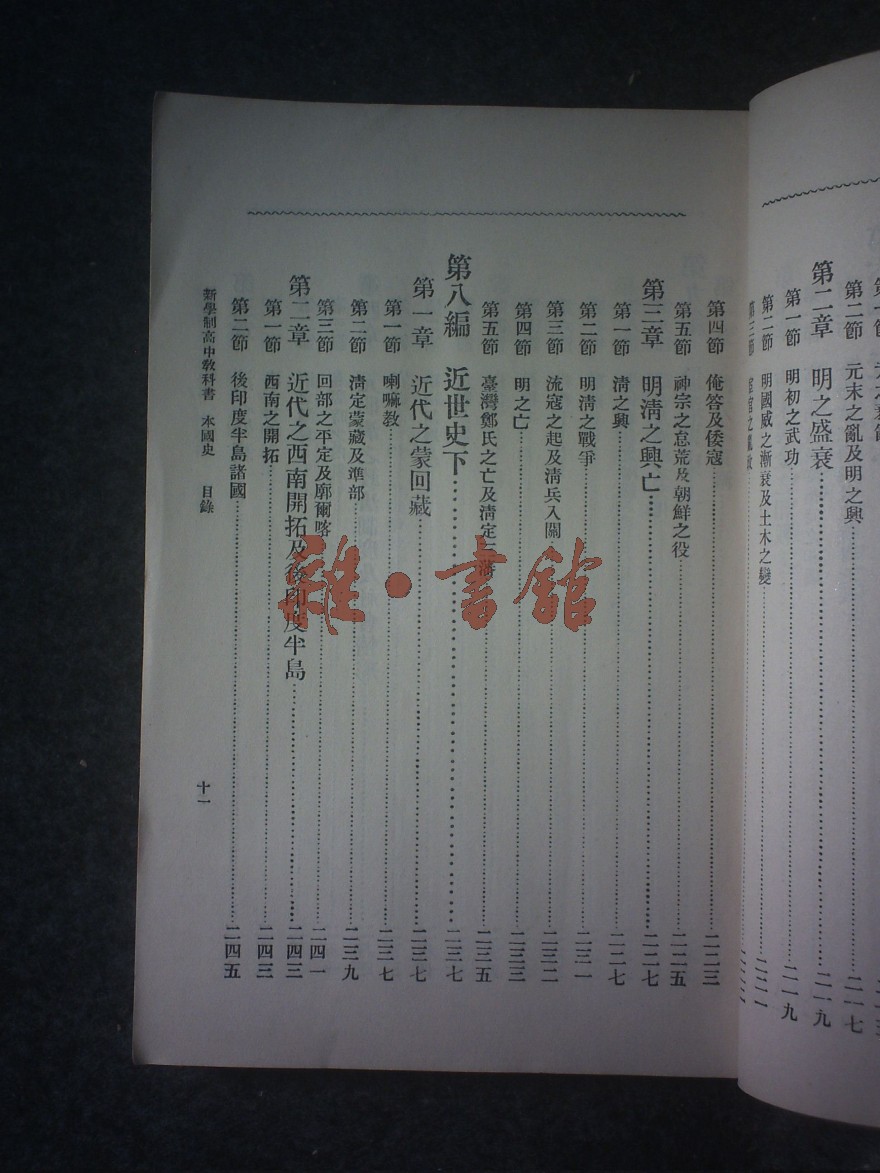 第二節 元末之亂及明之興 二一七
第二章 明之盛衰 二一九
第一節 明初之武功 二一九
第二節 明國威之漸衰及土木之變
第四節 俺答及倭寇 二二三
第五節 神宗之怠荒及朝鮮之役 二二五
第三章 明清之興亡 二二七
第一節 清之興 二二七
第二節 明清之戰爭 二三一
第三節 流寇之起及清兵入關 二三二
第四節 明之亡 二三三
第五節 臺灣鄭氏之亡及清定 藩 二三五
第八編 近世史下 二三七
第一章 近代之蒙回藏 二三七
第一節 喇嘛教 二三七
第二節 清定蒙藏及準部 二三九
第三節 回部之平定及廓爾喀 二四一
第二章 近代之西南開拓及後印度半島 二四三
第一節 西南之開拓 二四三
第二節 後印度半島諸國 二四五
新學制高中教科書 本國史 目錄 十一
雜·書館